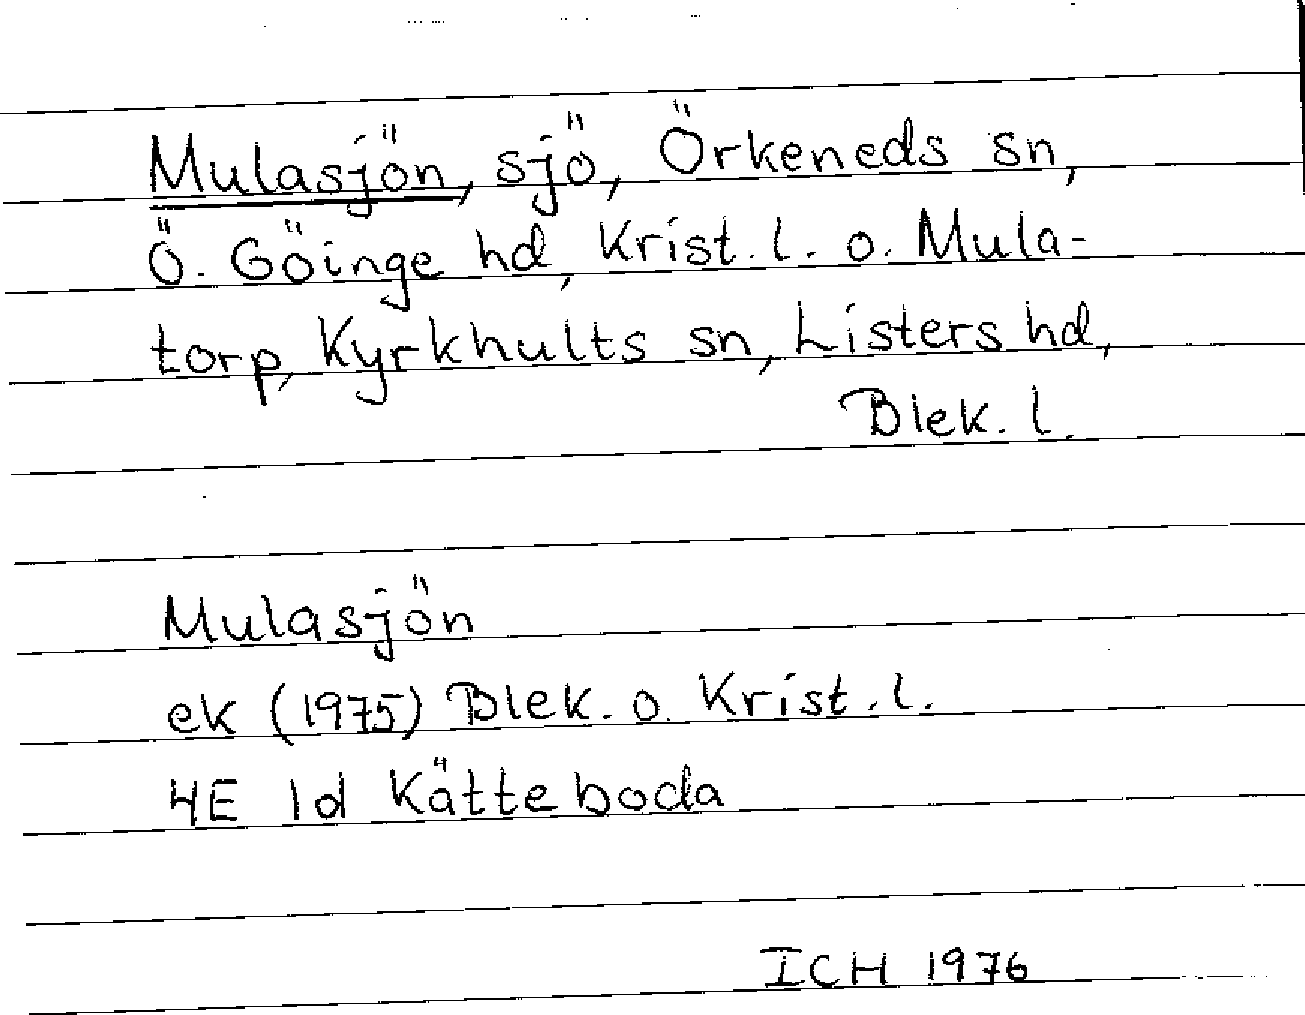 Mulasjön, sjö, Örkeneds sn,
Ö. Göinge hd, Krist. l. o. Mula-
torp, Kyrkhults sn, Listers hd,
Blek. l.
Mulasjön
ek (1975) Blek. o. Krist. l.
4E 1d Kätteboda
ICH 1976